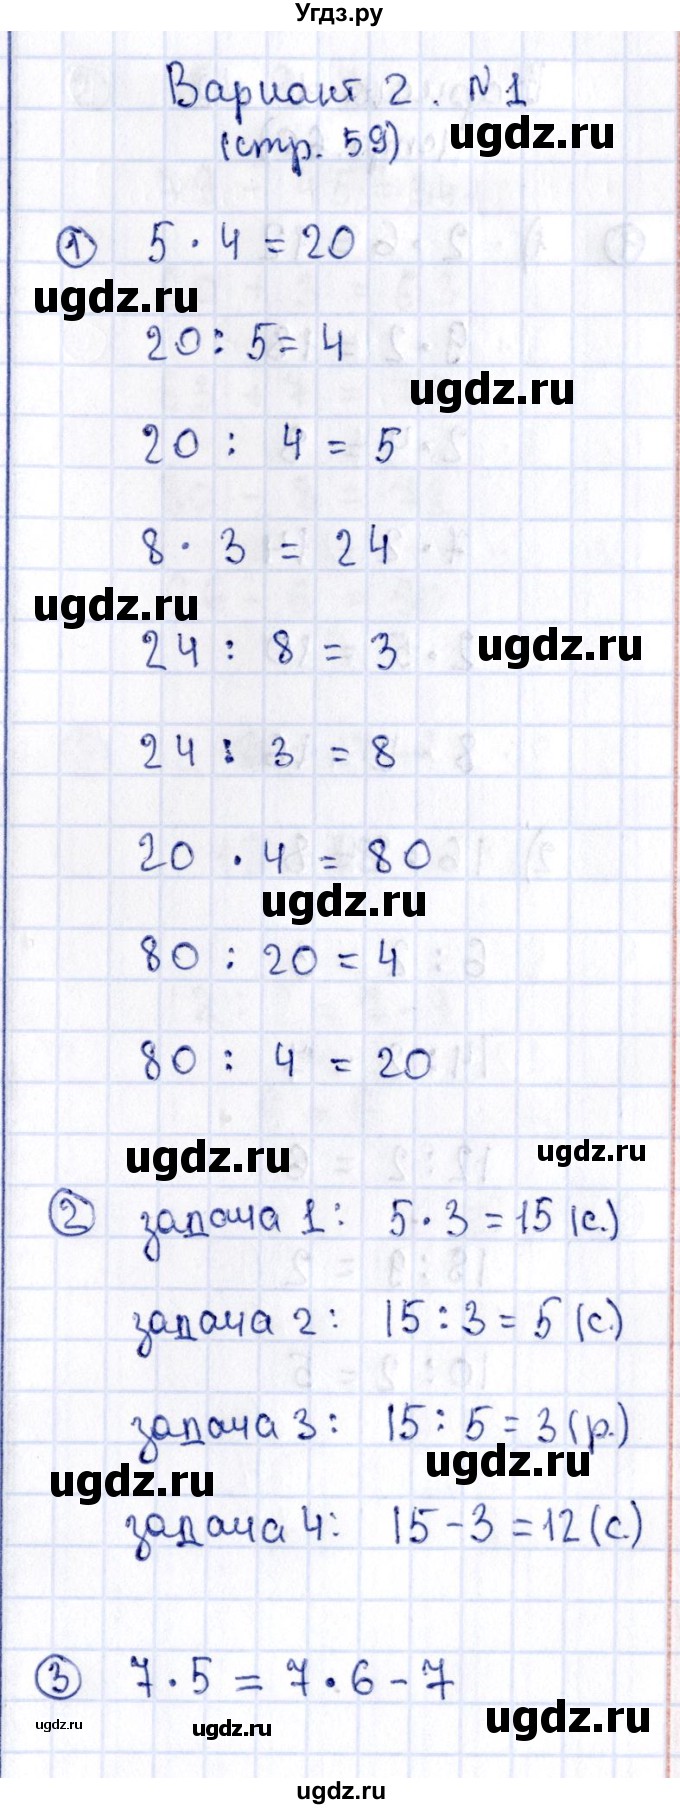 Угдз.ру
Вариант 2. N1
(стр. 59)
ugdz.ru
① 5 · 4 = 20
ugdz.ru
20 : 5 = 4
ugdz.ru
20 : 4 = 5
8 · 3 = 24
ugdz.ru
24 : 8 = 3
ugdz.ru
24 : 3 = 8
20 · 4 = 80
ugdz.ru
80 : 20 = 4
80 : 4 = 20
ugdz.ru
ugdz.ru
② задача 1: 5 · 3 = 15 (с.)
задача 2: 15 : 3 = 5 (с.)
задача 3: 15 : 5 = 3 (р.)
ugdz.ru
ugdz.ru
задача 4: 15 - 3 = 12 (с.)
③ 7 · 5 = 7 · 6 - 7
ugdz.ru
ugdz.ru
ugdz.ru
ugdz.ru